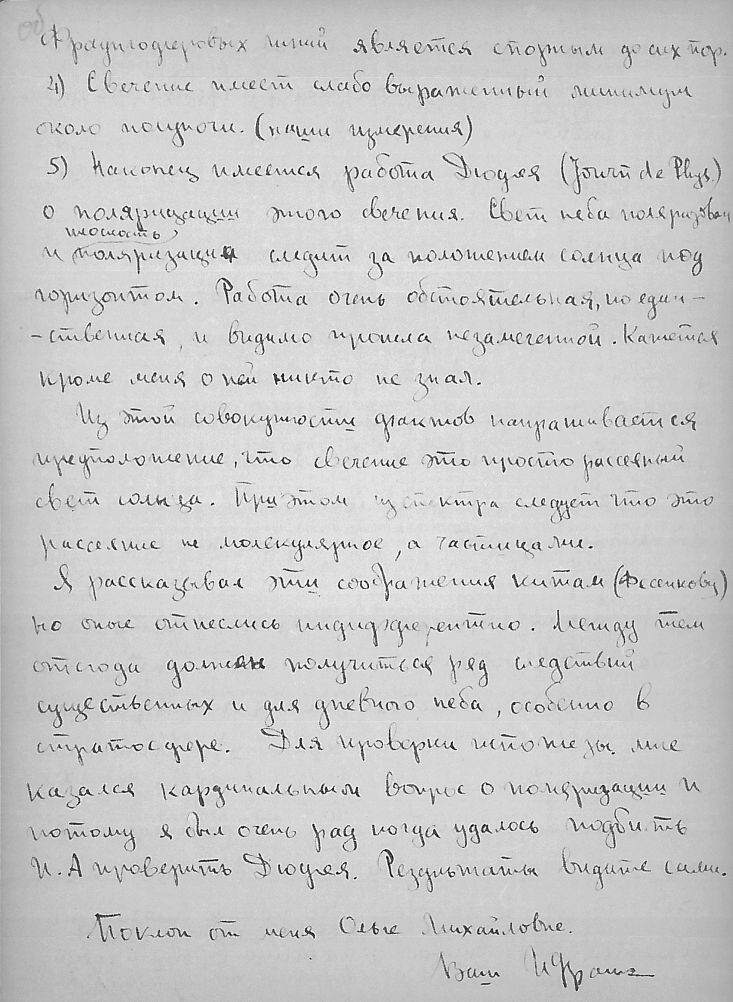 Фраунгоферовых линий является спорным до сих пор.
4) Свечение имеет слабо выраженный минимум
около полуночи. (наши измерения)
5) Наконец имеется работа Дюфея (Journ de Phys.)
о поляризации этого свечения. Свет неба поляризован
плоскость
и поляризации следит за положением солнца под
горизонтом. Работа очень обстоятельная, но един-
-ственная, и видимо прошла незамеченной. Кажется
кроме меня о ней никто не знал.
Из этой совокупности фактов напрашивается
предположение, что свечение это просто рассеяный
свет солнца. При этом из спектра следует что это
рассеяние не молекулярное, а частицами.
Я рассказывал эти соображения китам (Фесенкову)
но оные отнеслись индифферентно. Между тем
отсюда должен получиться ряд следствий
существенных и для дневного неба, особенно в
стратосфере. Для проверки гипотезы мне
казался кардинальным вопрос о поляризации и
потому я был очень рад когда удалось подбить
И.А проверить Дюфея. Результаты видите сами.
Поклон от меня Ольге Михайловне.
Ваш ИФранк